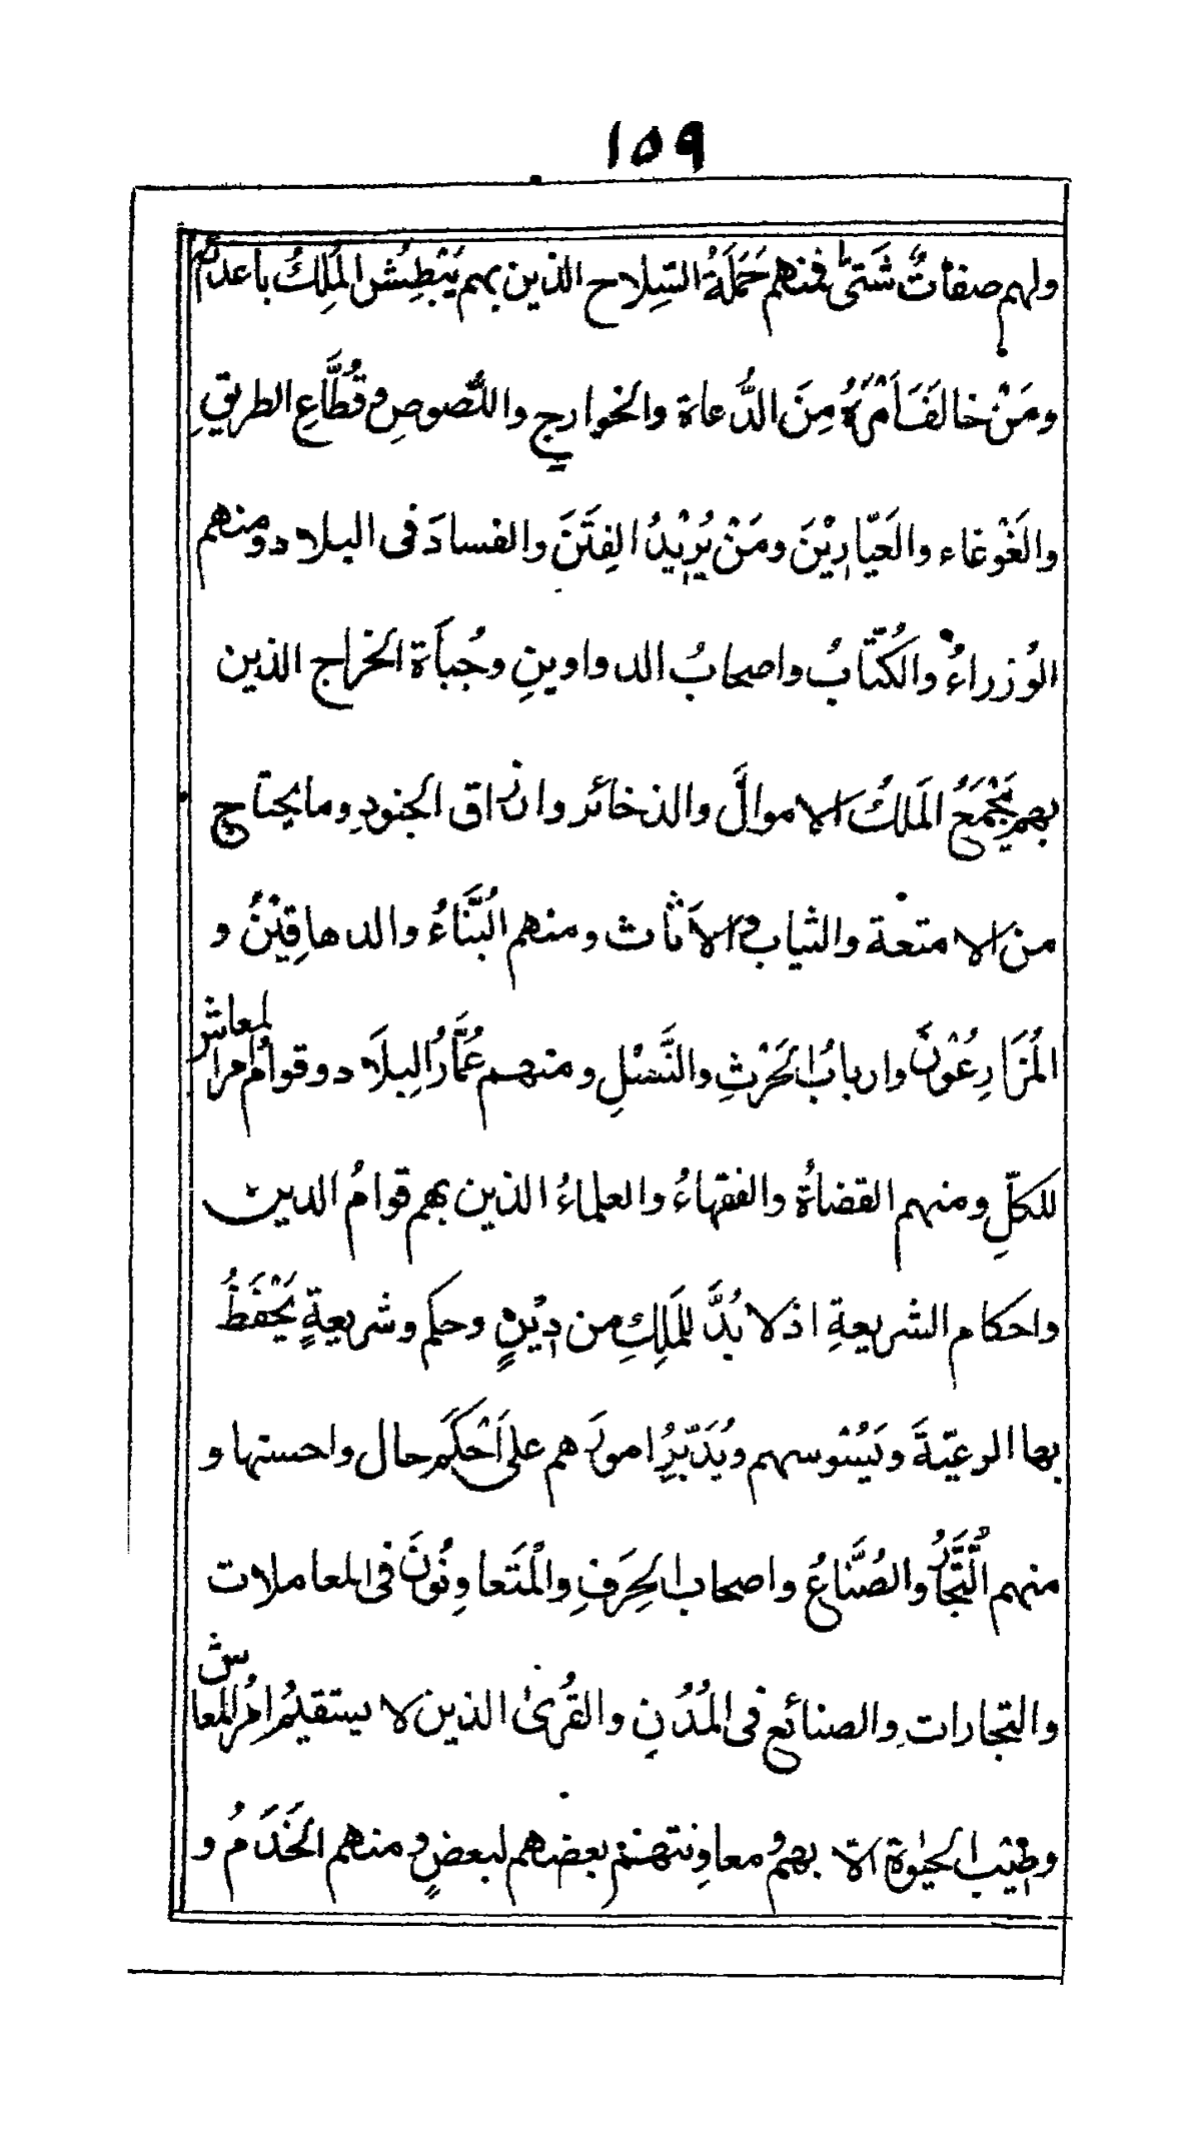 ١٥٩
ولهم صفاتٌ شَتىّٰ فمنهم حَمَلَةُ السِلاح الذين بهم يَبْطِشُ المَلِكُ باعدائهِ
ومَنْ خالَفَ اَمْرَهُ مِنَ الدُّعاة والخوارج واللُصوصِ وقُطَّاعِ الطريقِ
والغَوْغاء والعَيّارِيْنَ ومَنْ يُرِيْدُ الفِتَنَ والفسادَ فى البلاد ومنهم
الوُزراءُ والكُتّابُ واصحابُ الدواوينِ وجُباَة الخراج الذين
بهم يَجْمَعُ المَلكُ الاموالَ والذخائر وارزاق الجنودِ وما يحتاج
من الامتعة والثياب والاَثاث ومنهم البُنَّاءُ والدهاقِيْنُ و
المُزَارِعُوْنَ واربابُ الحَرْثِ والنَّسْلِ ومنهم عُمَّارُ البِلَاد وقوامُ امر المعاش
للكلِّ ومنهم القضاةُ والفقهاءُ والعلماءُ الذين بهم قوامُ الدين
واحكام الشريعةِ اذ لا بُدَّ للمَلِكِ من دِيْنٍ وحكم وشريعةٍ يَحْفَظُ
بها الرعيّةَ ويَسُوسهم ويُدَبِّرُ امورَهم على اَحْكَمِ حال واحسنها و
منهم التُّجَّارُ والصُنَّاعُ واصحاب الحِرَفِ والمُتَعاوِنُونَ فى المعاملات
والتجارات والصنائع فى المُدُنِ والقُرىٰ الذين لا يستقيمُ امرُ المعاش
وطِيْبُ الحيٰوة الا بهم ومعاونتهم بعضهم لبعضٍ ومنهم الخَدَمُ و